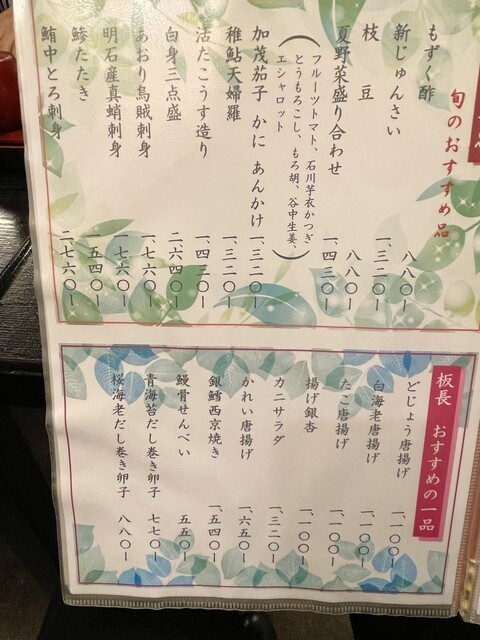 旬のおすすめ品
もずく酢 八八〇ー
新じゅんさい 一、三二〇ー
枝豆 八八〇ー
夏野菜盛り合わせ 一、四三〇ー
（フルーツトマト、石川芋衣かつぎ
とうもろこし、もろ胡、谷中生姜、
エシャロット）
加茂茄子 かに あんかけ 一、三二〇ー
稚鮎天婦羅 一、三二〇ー
活たこうす造り 一、四三〇ー
白身三点盛 二、六四〇ー
あおり烏賊刺身 一、七六〇ー
明石産真蛸刺身 一、七六〇ー
鯵たたき 一、五四〇ー
鮪中とろ刺身 二、七六〇ー
板長 おすすめの一品
どじょう唐揚げ 一、一〇〇ー
白海老唐揚げ 一、一〇〇ー
たこ唐揚げ 一、一〇〇ー
揚げ銀杏 一、一〇〇ー
カニサラダ 一、三二〇ー
かれい唐揚げ 一、六五〇ー
銀鱈西京焼き 一、五四〇ー
鰻骨せんべい 五五〇ー
青海苔だし巻き卵子 七七〇ー
桜海老だし巻き卵子 八八〇ー